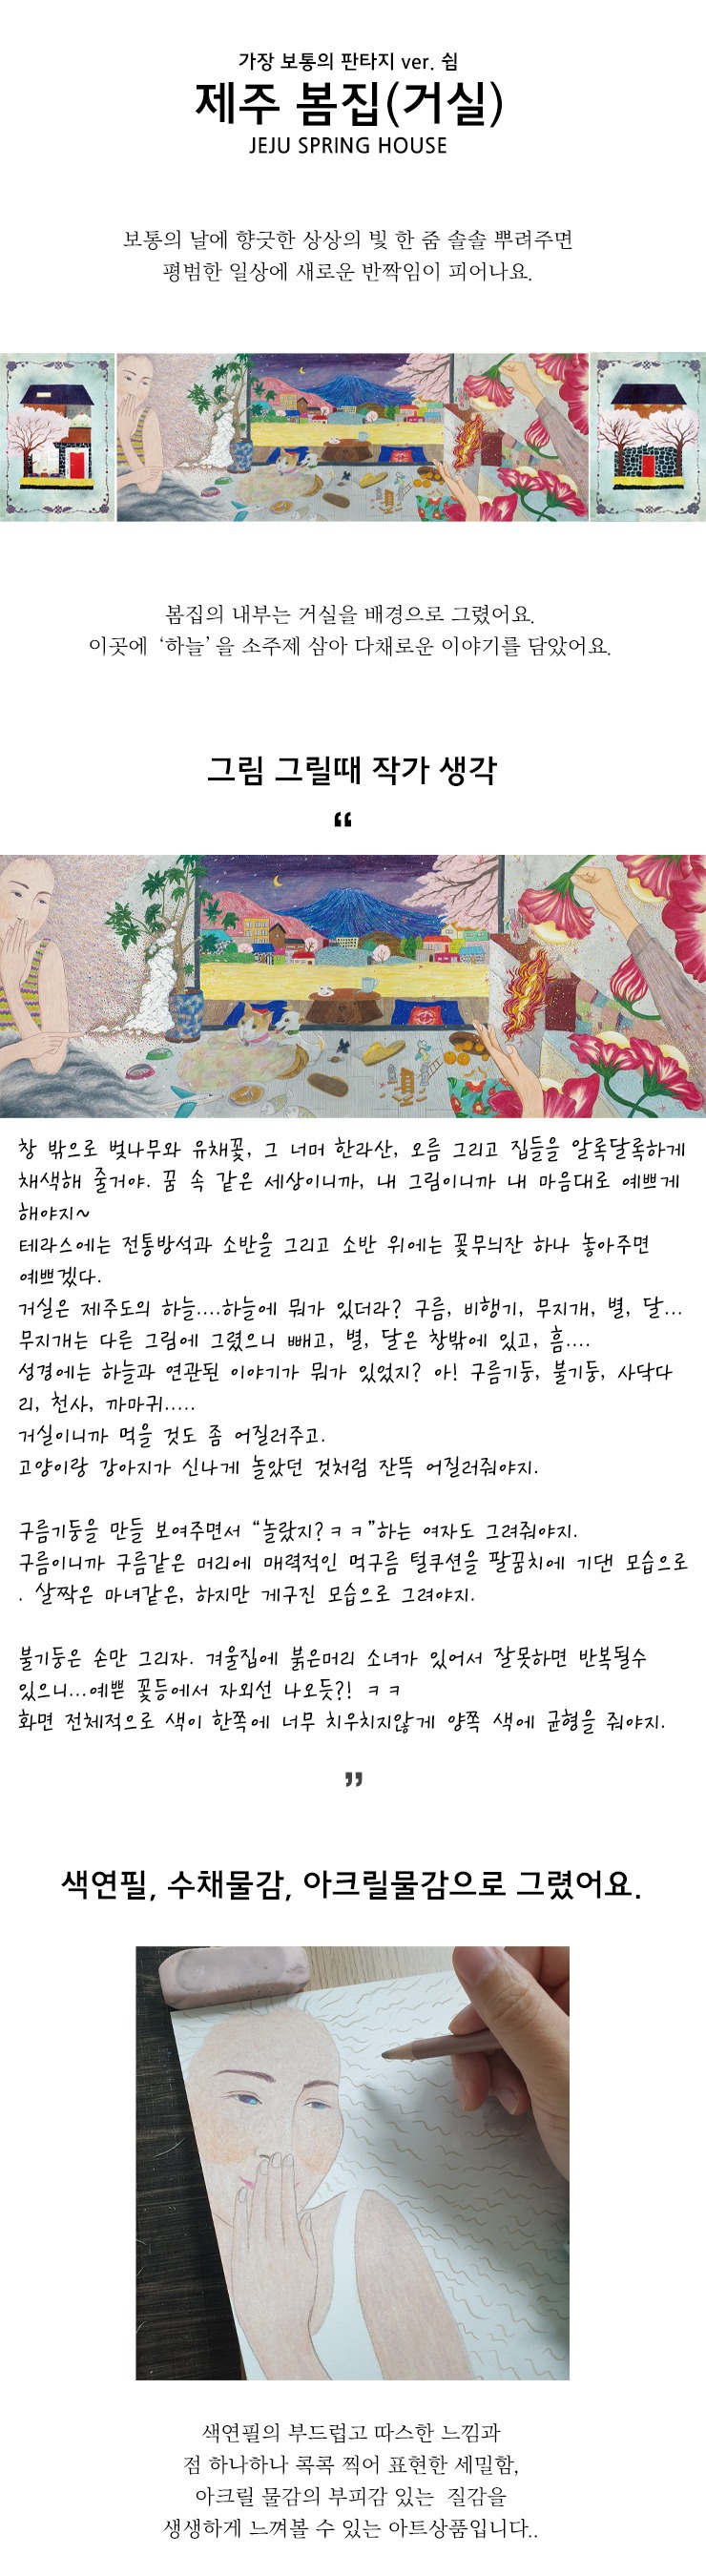 가장 보통의 판타지 ver. 쉼
제주 봄집(거실)
JEJU SPRING HOUSE
보통의 날에 향긋한 상상의 빛 한 줌 솔솔 뿌려주면
평범한 일상에 새로운 반짝임이 피어나요.
봄집의 내부는 거실을 배경으로 그렸어요.
이곳에 ‘하늘’ 을 소주제 삼아 다채로운 이야기를 담았어요.
그림 그릴때 작가 생각
“
창 밖으로 벚나무와 유채꽃, 그 너머 한라산, 오름 그리고 집들을 알록달록하게
채색해 줄거야. 꿈 속 같은 세상이니까, 내 그림이니까 내 마음대로 예쁘게
해야지~
테라스에는 전통방석과 소반을 그리고 소반 위에는 꽃무늬잔 하나 놓아주면
예쁘겠다.
거실은 제주도의 하늘....하늘에 뭐가 있더라? 구름, 비행기, 무지개, 별, 달...
무지개는 다른 그림에 그렸으니 빼고, 별, 달은 창밖에 있고, 흠....
성경에는 하늘과 연관된 이야기가 뭐가 있었지? 아! 구름기둥, 불기둥, 사닥다
리, 천사, 까마귀.....
거실이니까 먹을 것도 좀 어질러주고.
고양이랑 강아지가 신나게 놀았던 것처럼 잔뜩 어질러줘야지.
구름기둥을 만들 보여주면서 “놀랐지?ㅋㅋ”하는 여자도 그려줘야지.
구름이니까 구름같은 머리에 매력적인 먹구름 털쿠션을 팔꿈치에 기댄 모습으로
. 살짝은 마녀같은, 하지만 게구진 모습으로 그려야지.
불기둥은 손만 그리자. 겨울집에 붉은머리 소녀가 있어서 잘못하면 반복될수
있으니...예쁜 꽃등에서 자외선 나오듯?! ㅋㅋ
화면 전체적으로 색이 한쪽에 너무 치우치지않게 양쪽 색에 균형을 줘야지.
”
색연필, 수채물감, 아크릴물감으로 그렸어요.
색연필의 부드럽고 따스한 느낌과
점 하나하나 콕콕 찍어 표현한 세밀함,
아크릴 물감의 부피감 있는 질감을
생생하게 느껴볼 수 있는 아트상품입니다..